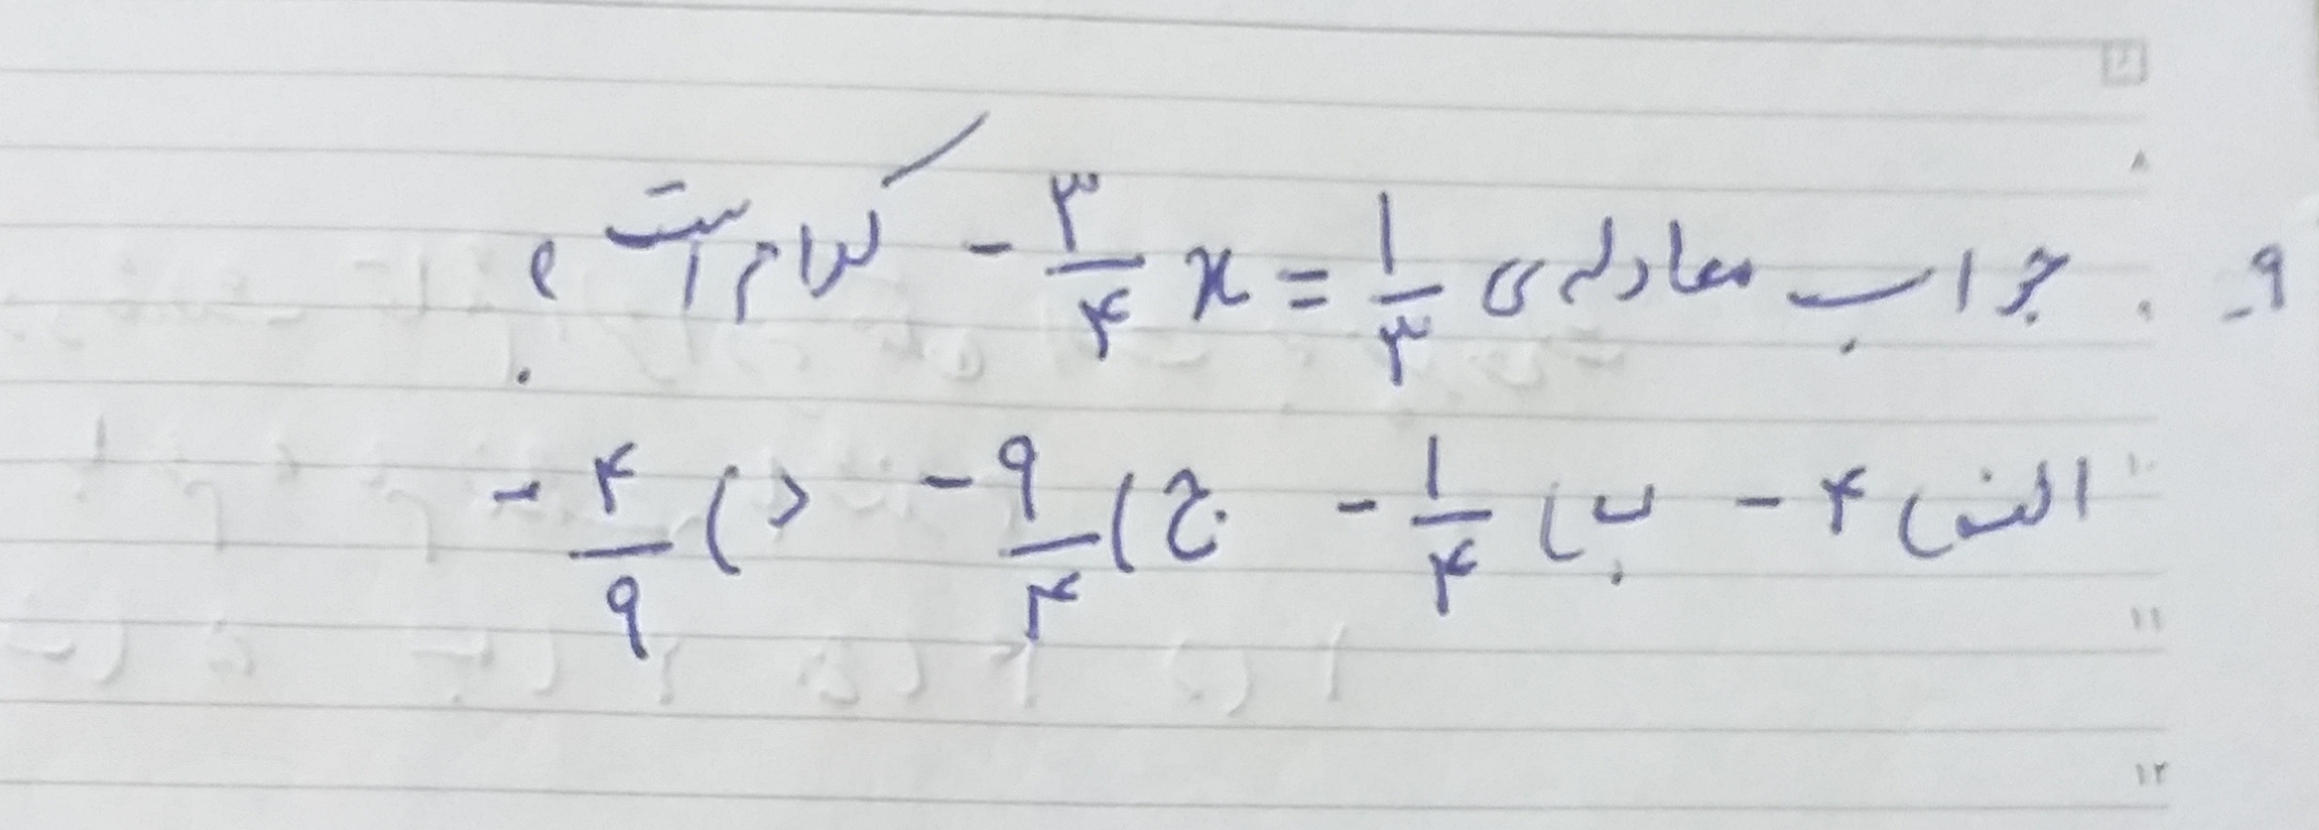 ۹- جواب معادله‌ی -۳/۴ x = ۱/۳ کدام است؟
الف) -۴ ب) -۱/۴ ج) -۹/۴ د) -۴/۹
۸
۱۰
۱۱
۱۲